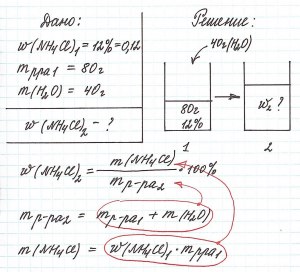 Дано:
w(NH₄Cl)₁ = 12% = 0,12
mр-ра1 = 80г
m(H₂O) = 40г
w(NH₄Cl)₂ – ?
Решение:
40г(H₂O)
80г
12%
w₂ ?
1
2
w(NH₄Cl)₂ = m(NH₄Cl) / mр-ра2 · 100%
mр-ра2 = mр-ра1 + m(H₂O)
m(NH₄Cl) = w(NH₄Cl)₁ · mр-ра1